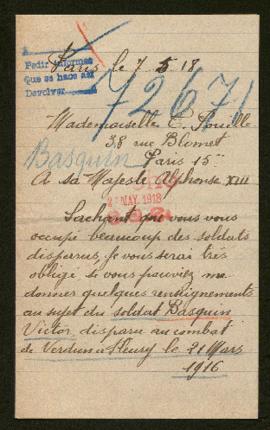 A
Pedir informes
Que se hace así
Devolver
Paris le 7 5 18
72671
Mademoiselle E. Pouille
38 rue Blomet
Basquin
Paris 15
A sa Majesté Alphonse XIII
MAY. 1918
Sachant que vous vous
occupé beaucoup des soldats
disparus, je vous serai très
obligé si vous pouviez me
donner quelques renseignements
au sujet du soldat Basquin
Victor, disparu au combat
de Verdun a Fleury le 21 Mars
1916